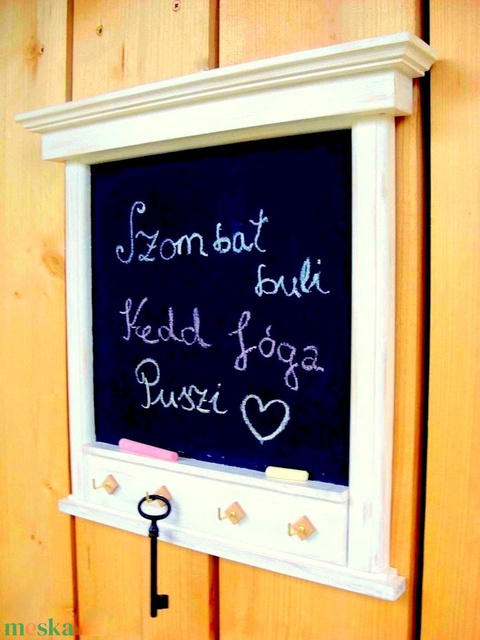 Szombat
buli
Kedd jóga
Puszi
meska